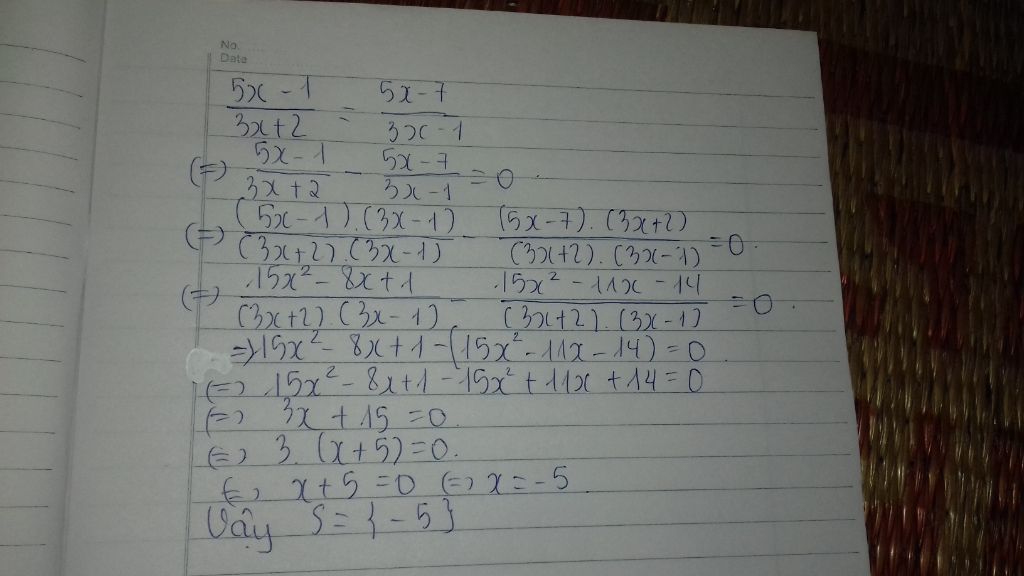 No.
Date
(5x - 1)/(3x + 2) = (5x - 7)/(3x - 1)
(=) (5x - 1)/(3x + 2) - (5x - 7)/(3x - 1) = 0.
(=) ((5x - 1).(3x - 1))/((3x + 2).(3x - 1)) - ((5x - 7).(3x + 2))/((3x + 2).(3x - 1)) = 0.
(=) (15x² - 8x + 1)/((3x + 2).(3x - 1)) - (15x² - 11x - 14)/((3x + 2).(3x - 1)) = 0.
=) 15x² - 8x + 1 - (15x² - 11x - 14) = 0.
(=) 15x² - 8x + 1 - 15x² + 11x + 14 = 0
(=) 3x + 15 = 0.
(=) 3. (x + 5) = 0.
(=) x + 5 = 0 (=) x = -5
Vậy S = { -5 }